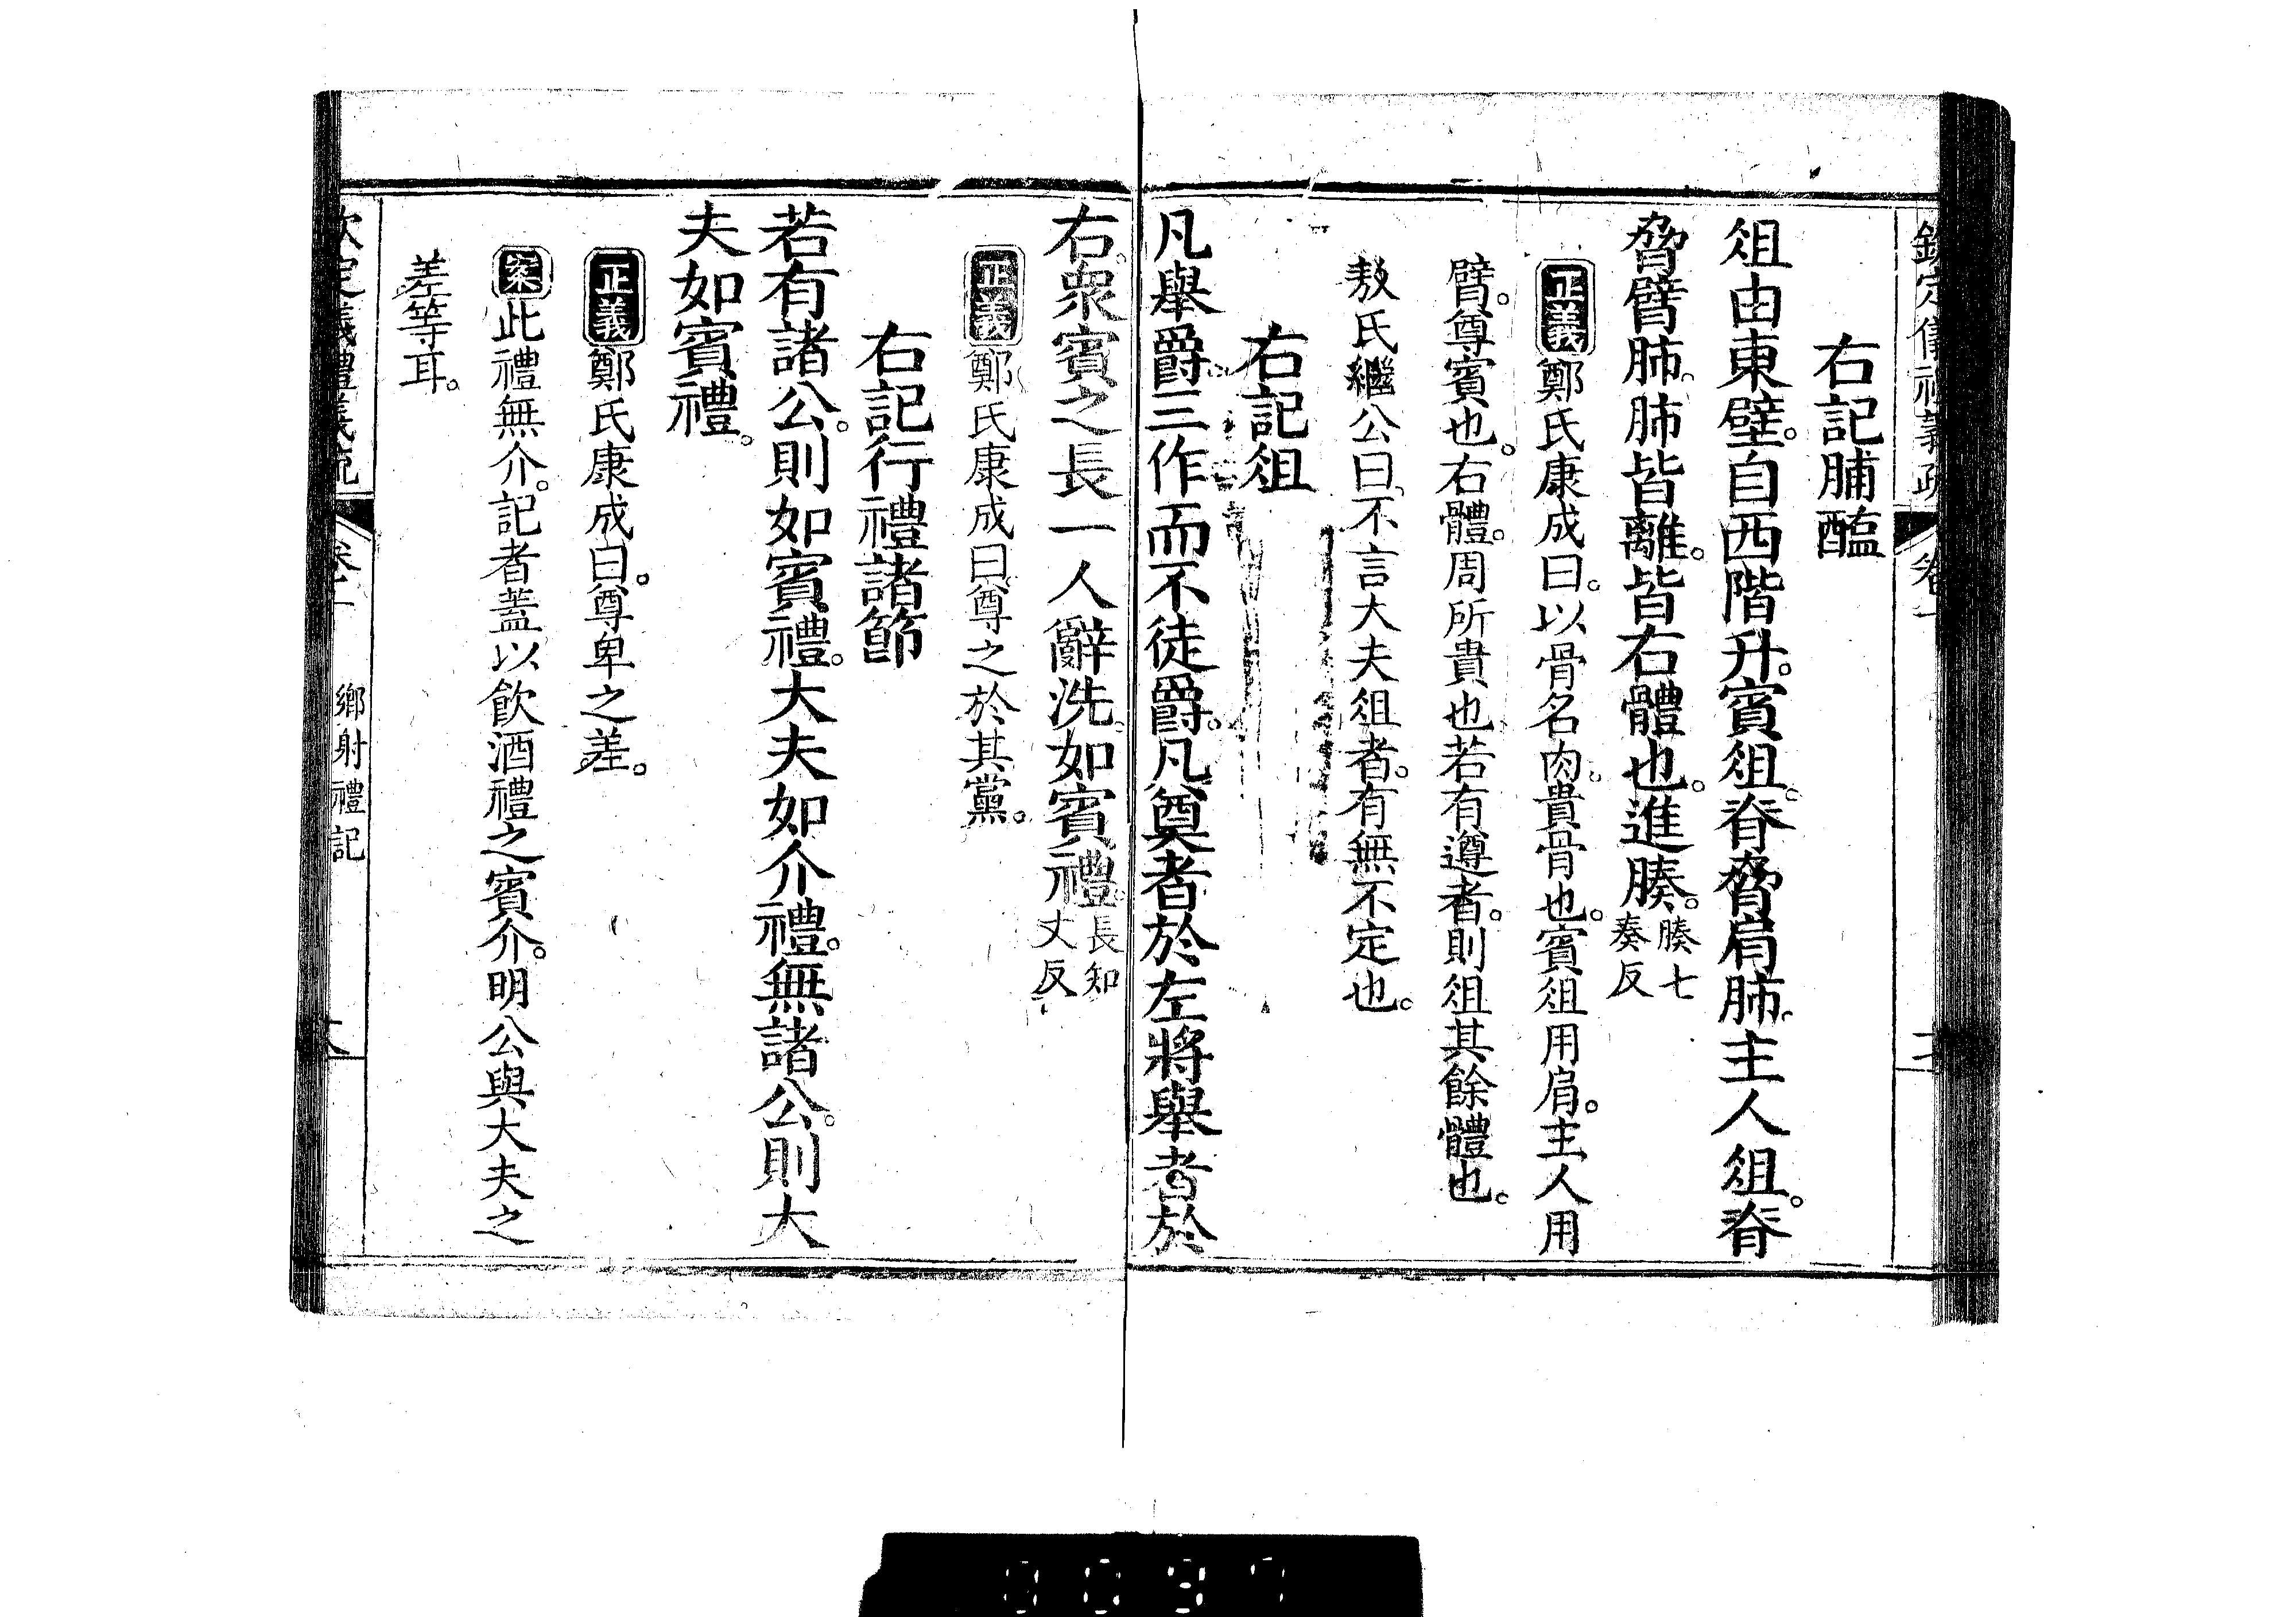 欽定儀禮義疏 卷十
右記脯醢
俎由東壁。自西階升。賓俎。脊脅肩肺。主人俎。脊
脅臂肺。肺皆離。皆右體也。進腠。腠七奏反
正義鄭氏康成曰。以骨名肉。貴骨也。賓俎用肩。主人用
臂。尊賓也。右體。周所貴也。若有遵者。則俎其餘體也。
敖氏繼公曰。不言大夫俎者。有無不定也。
右記俎
凡舉爵。三作而不徒爵。凡奠者於左。將舉者於
右。衆賓之長一人辭洗。如賓禮。長知丈反
正義鄭氏康成曰。尊之於其黨。
右記行禮諸節
若有諸公。則如賓禮。大夫如介禮。無諸公。則大
夫如賓禮。
正義鄭氏康成曰。尊卑之差。
案此禮無介。記者蓋以飲酒禮之賓介。明公與大夫之
差等耳。
欽定儀禮義疏 卷十 鄉射禮記